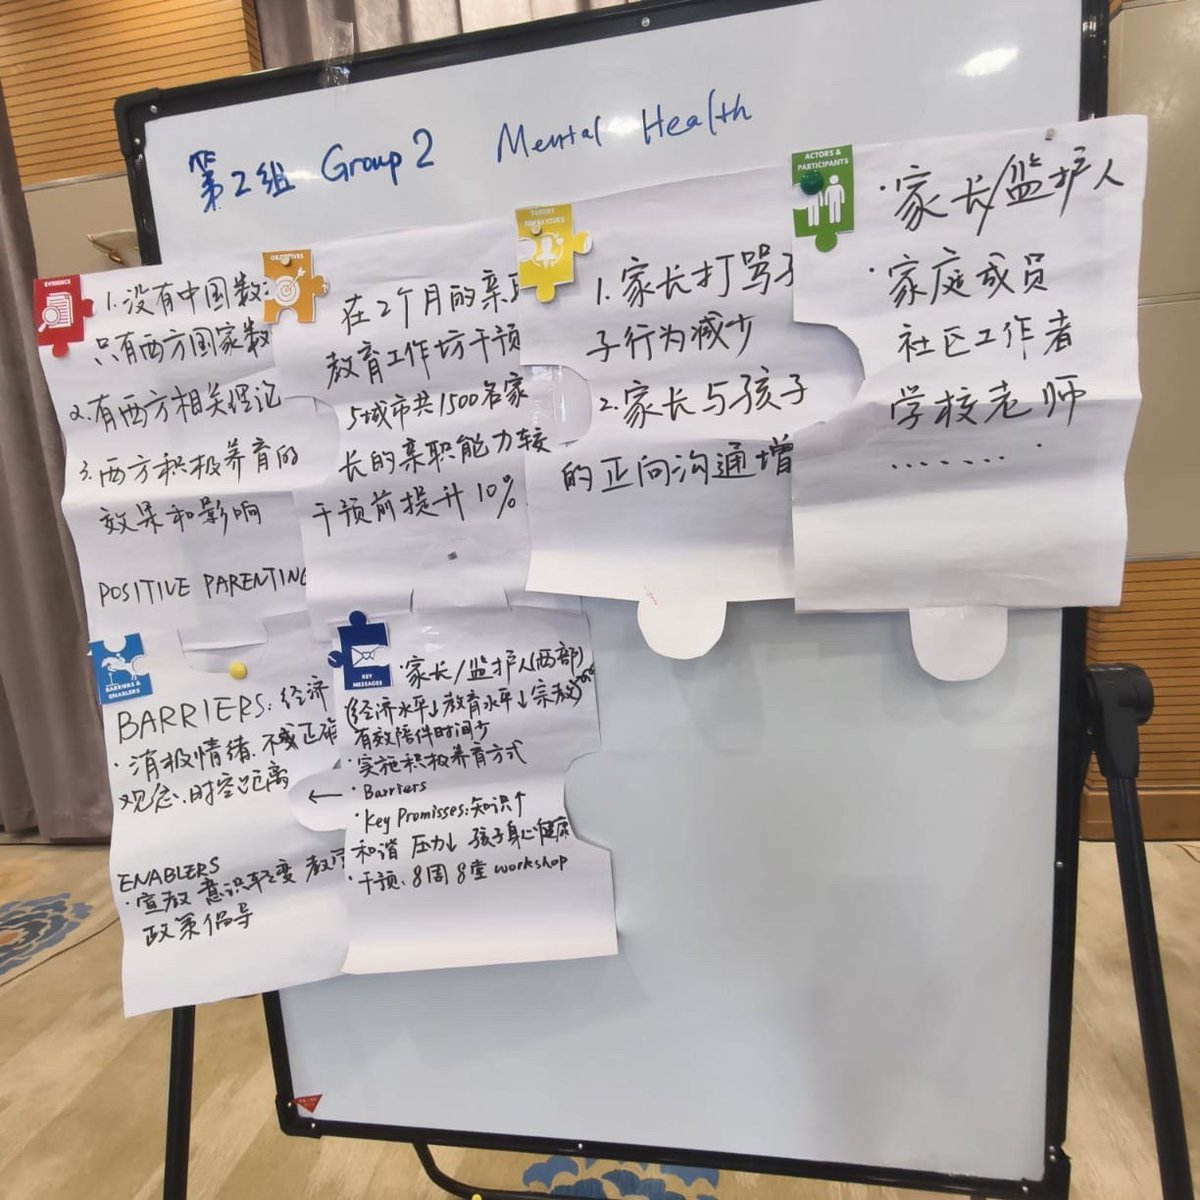 第2组 Group 2 Mental Health
EVIDENCE
1. 没有中国数
只有西方国家数
2. 有西方相关理论
3. 西方积极养育的
效果和影响
POSITIVE PARENTING
OBJECTIVES
在2个月的亲
教育工作坊干预
5城市共1500名家
长的亲职能力较
干预前提升10%
TARGET
BEHAVIOURS
1. 家长打骂
子行为减少
2. 家长与孩子
的正向沟通增
ACTORS &
PARTICIPANTS
·家长/监护人
·家庭成员
社区工作者
学校老师
.......
BARRIERS &
ENABLERS
BARRIERS: 经济
·消极情绪、不
观念、时空距离
ENABLERS
·宣教 意识转变
政策倡导
KEY
MESSAGES
·家长/监护人(两部)
(经济水平↓教育水平↓宗教)
有效陪伴时间少
·实施积极养育方式
← ·Barriers
·Key Promisses: 知识↑
和谐 压力↓ 孩子身心健康
·干预: 8周8堂 workshop